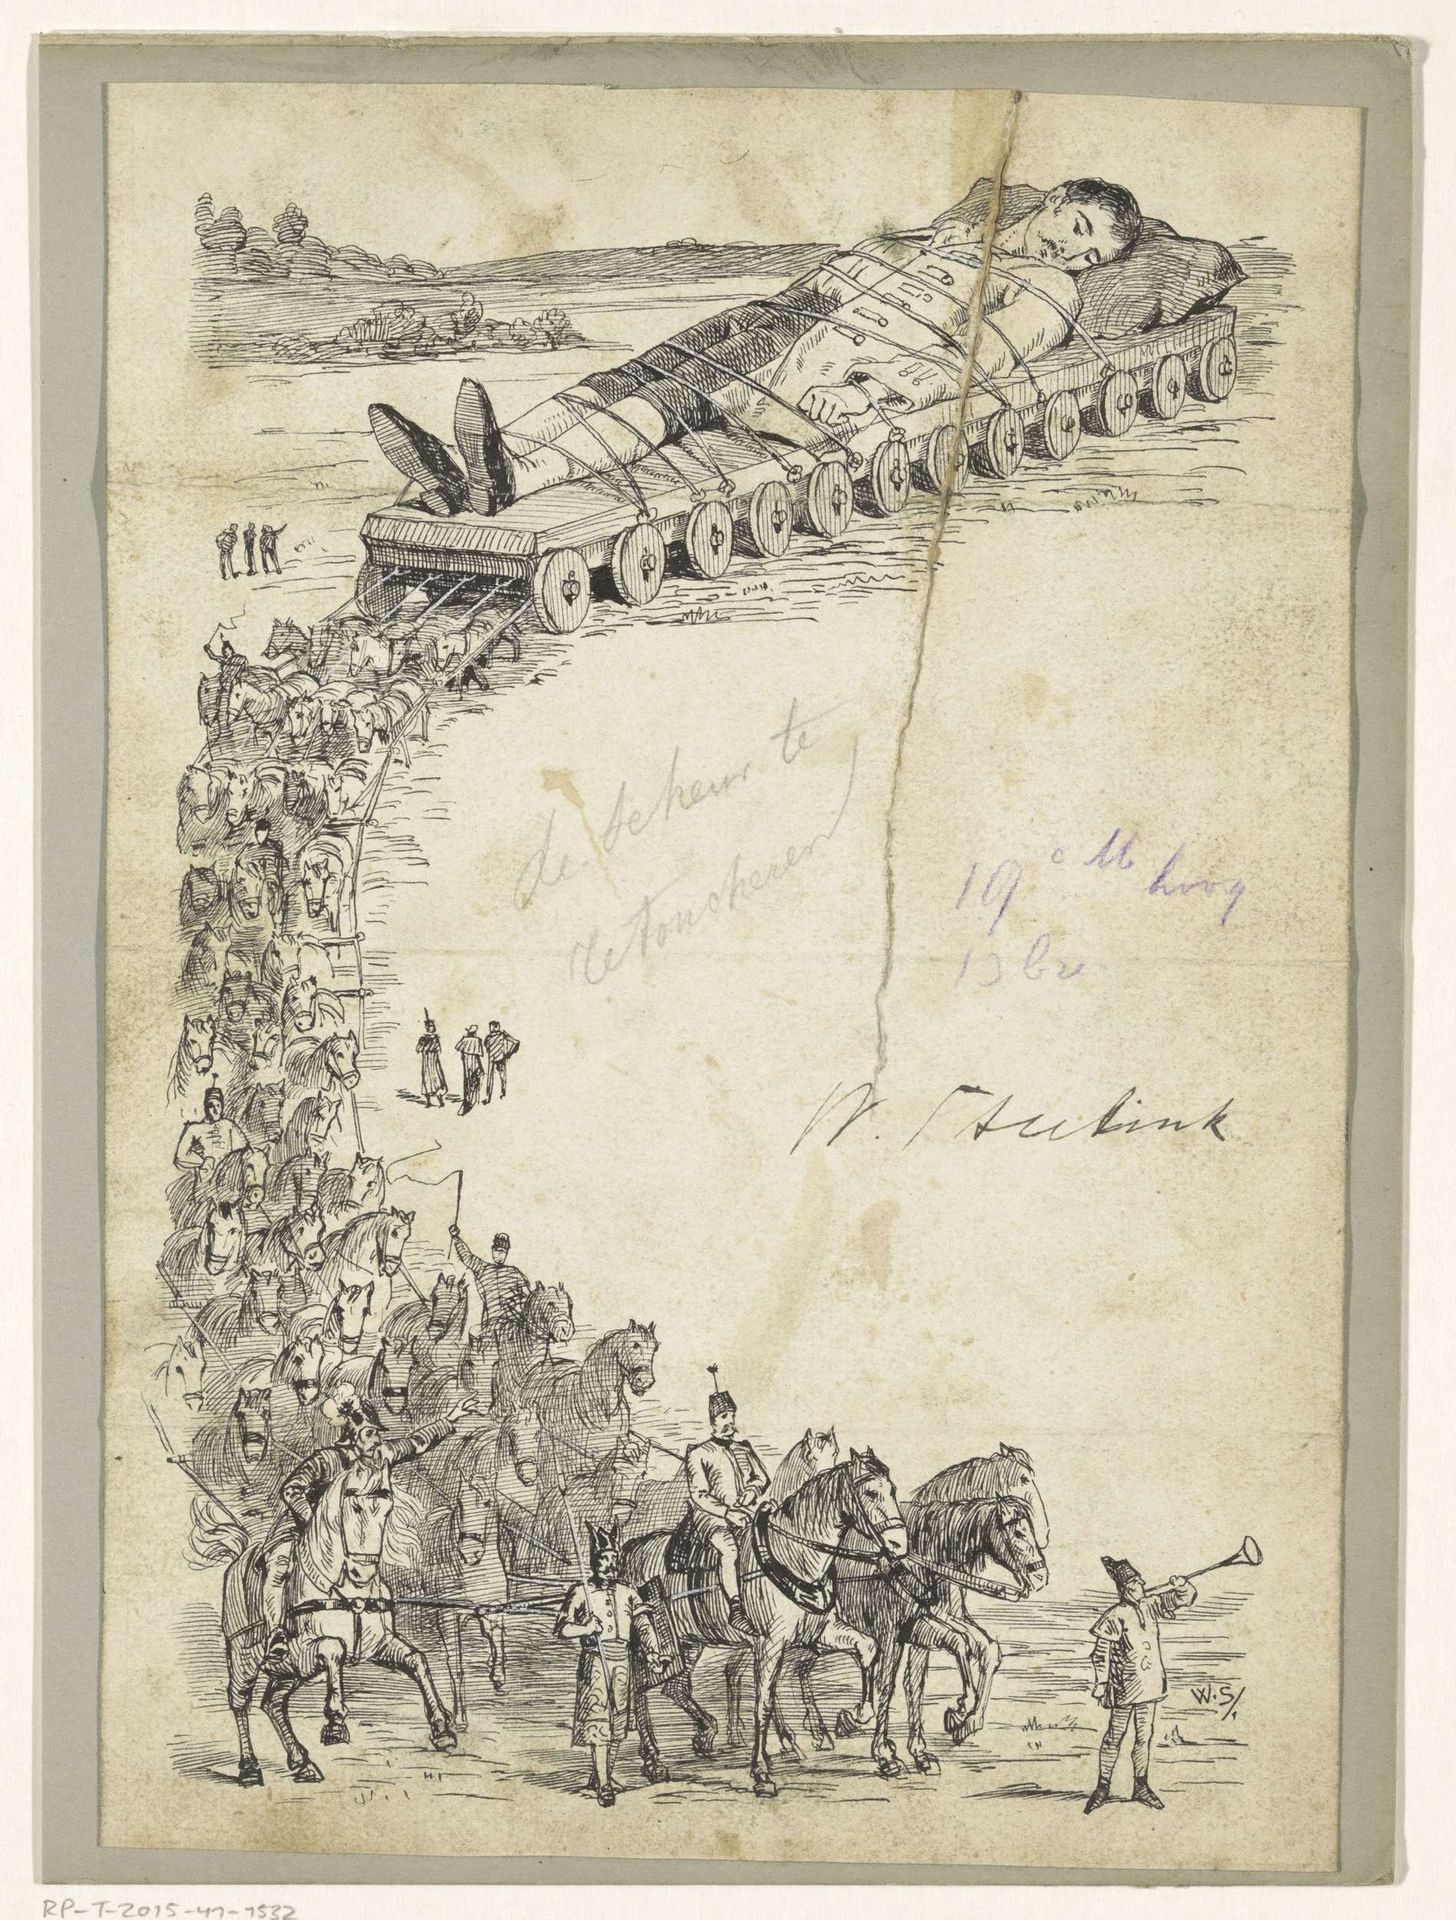 de scheur te
retoucheren
19 cM hoog
13 bre
W. Steelink
W.S/.
RP-T-2015-41-1532